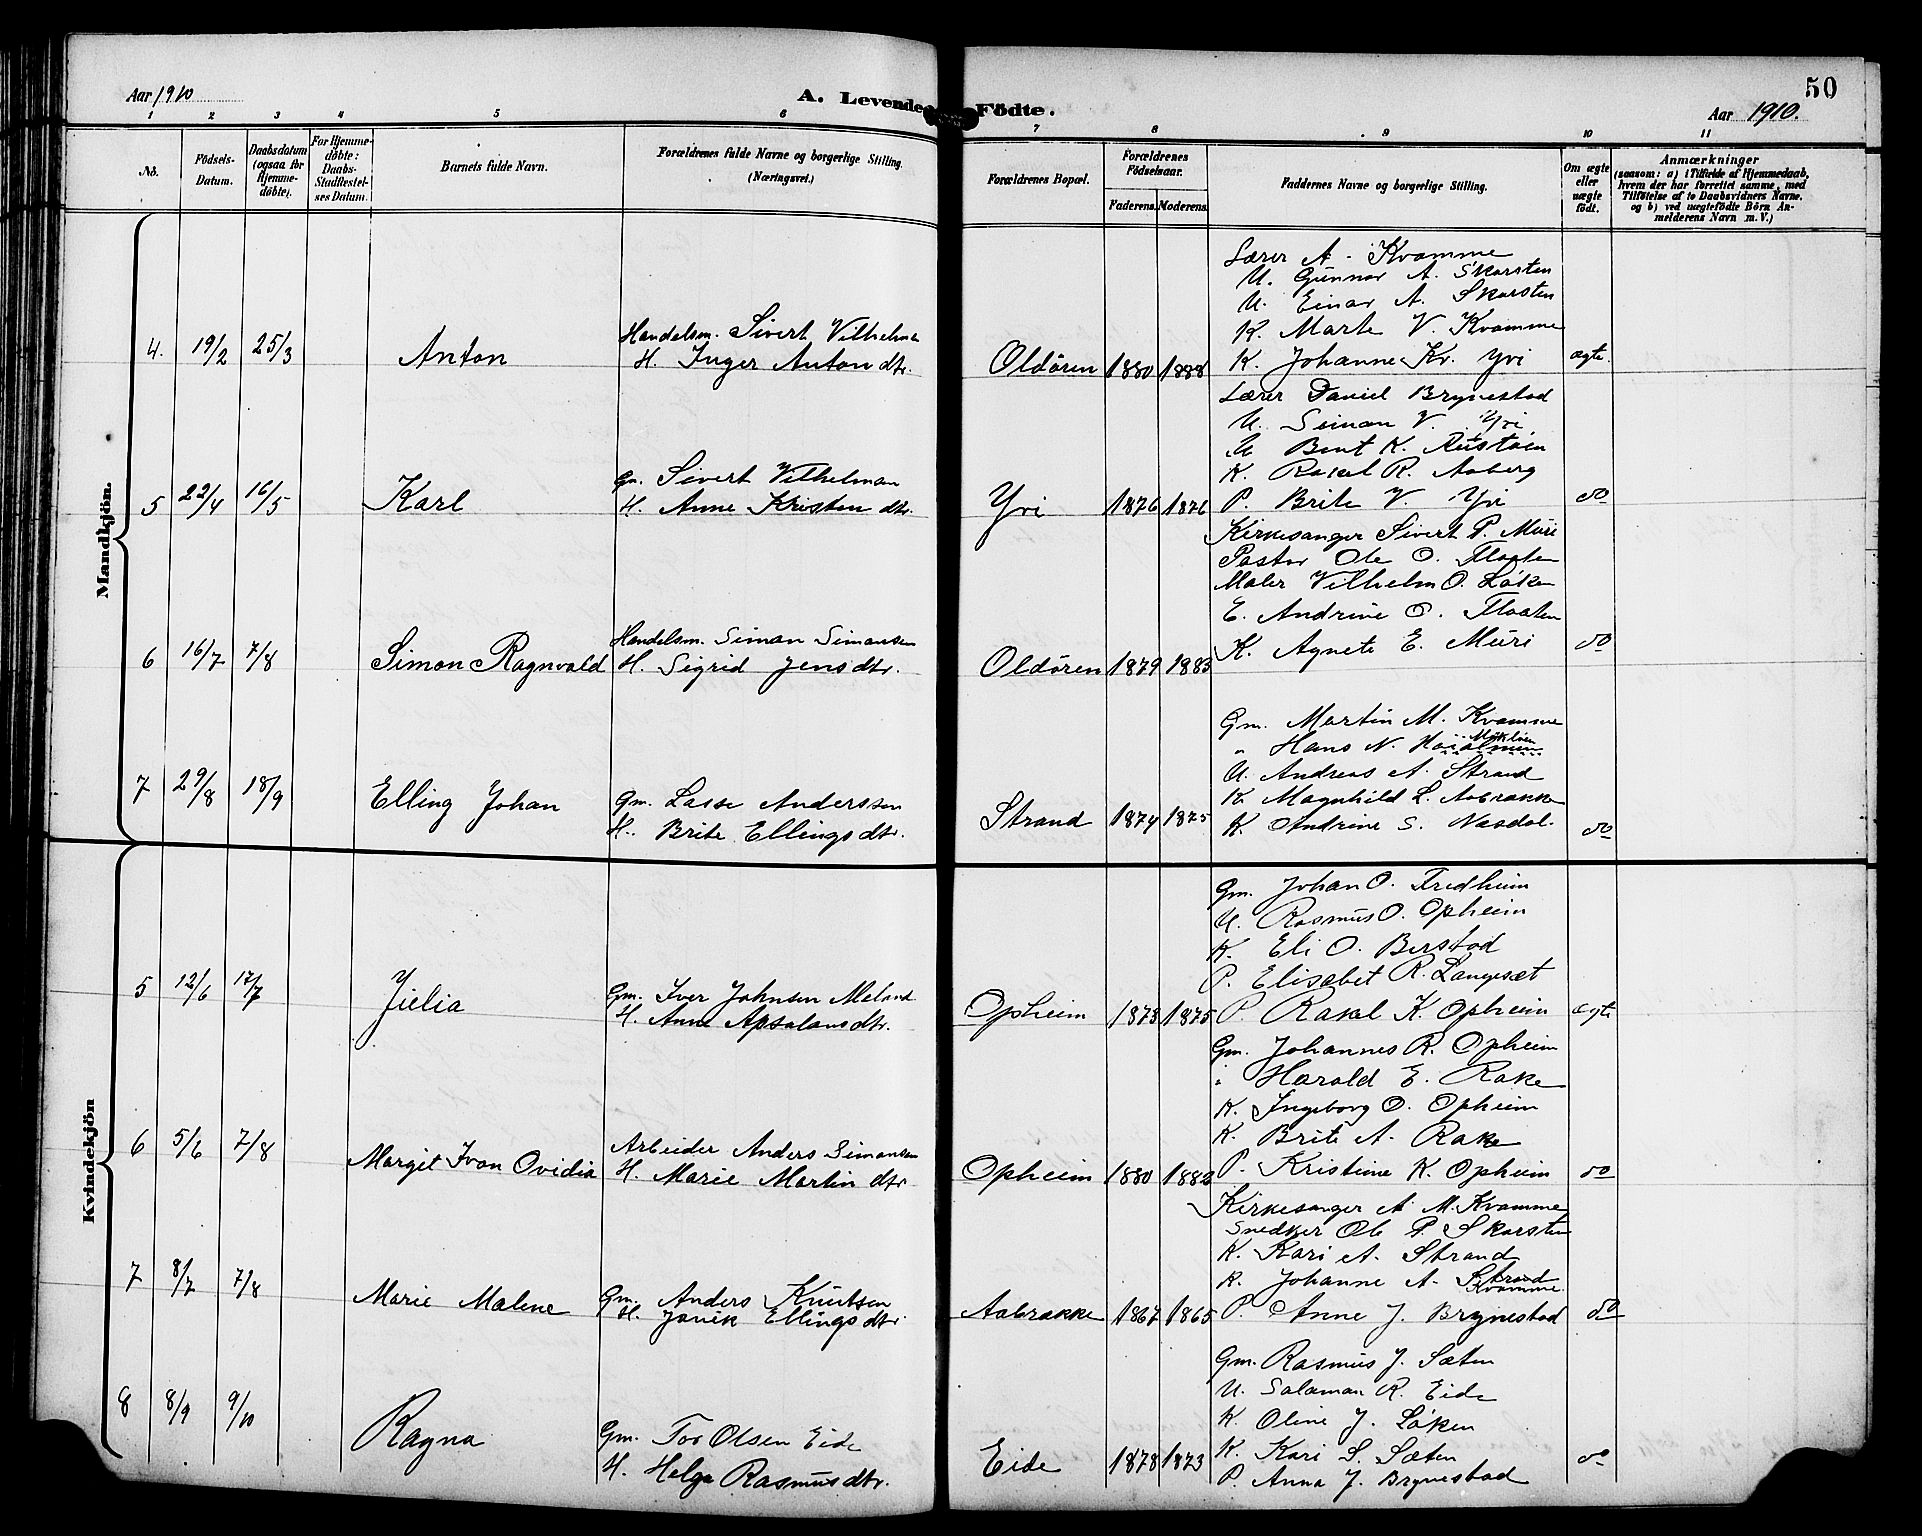 50
Aar 1910
A. Levende Födte.
Aar 1910.
1 2 3 4 5 6 7 8 9 10 11
No.
Födsels-Datum.
Daabsdatum (ogsaa for Hjemme-döbte).
For Hjemme-döbte: Daabs-Stadfestel-ses Datum.
Barnets fulde Navn.
Forældrenes fulde Navne og borgerlige Stilling. (Næringsvei.)
Forældrenes Bopæl.
Forældrenes Födselsaar.
Faderens. Moderens.
Faddernes Navne og borgerlige Stilling.
Om ægte eller uægte födt.
Anmærkninger
(saasom: a) i Tilfælde af Hjemmedaab,
hvem der har forrettet samme, med
Tilföielse af to Daabsvidners Navne.
og b) ved uægtefödte Börn An-
melderens Navn m. V.)
Mandkjön.
Lærer A. Kvamme
U. Gunnar A. Skarsten
U. Einar A. Skarsten
K. Marte V. Kvamme
4. 19/2 25/3 Anton
Handelsm. Sivert Vilhelmsen
H. Inger Anton dtr.
Oldören 1880 1888 K. Johanne Kr. Yri ægte.
Lærer Daniel Brynestad
U. Simon V. Yri
U Bent K. Rustöen
K. Rakel R. Aaberg
5 22/4 16/5 Karl
Gm. Sivert Vilhelmsen
H. Anne Kristen dtr.
Yri 1876 1876 P. Brite V. Yri do
Kirkesanger Sivert P. Muri
Pastor Ole O. Flaaten
Maler Vilhelm O. Löken
E. Andrine O. Flaaten
6 16/7 7/8 Simon Ragnvald
Handelsm. Simon Simonsen
H. Sigrid Jens dtr.
Oldören 1879 1883 K. Agnete E. Muri do
Gm. Martin M. Kvamme
" Hans N.
U. Andreas A. Strand
K. Magnhild L. Aabrække
7 29/8 18/9 Elling Johan
Gm. Lasse Anderssen
H. Brite Ellings dtr.
Strand 1874 1875 K. Andrine S. Næsdal. do
Kvindekjön
Gm. Johan O. Fredheim
U. Rasmus O. Opheim
K. Eli O. Berstad
P. Elisabet R. Langesæt
5 12/6 17/7 Julia
Gm. Iver Johnsen Meland
H. Anne Apsalons dtr.
Opheim 1873 1875 P. Rakel K. Opheim ægte
Gm. Johannes R. Opheim
" Harald E. Rake
K. Ingeborg O. Opheim
K. Brite A. Rake
6 5/6 7/8 Margit Ivan Ovidia
Arbeider Anders Simonsen
H. Marie Martin dtr
Opheim 1880 1882 P. Kristine K. Opheim do
Kirkesanger A M. Kvamme
Snedker Ole P. Skarsten
K. Kari A. Strand
K. Johanne A. Strand
Kvamme
7 8/7 7/8 Marie Malene
Gm. Anders Knutsen
H. Ellings dtr
Aabrække 1867 1865 P. Anne J. Brynestad do
Gm. Rasmus J. Sæten
U. Salamon R. Eide
K. Oline J. Löken
8 8/9 9/10 Ragna
Gm. Tor Olsen Eide
H. Helga Rasmus dtr.
Eide 1878 1873 K. Kari S. Sæten do
P. Anna J. Brynestad